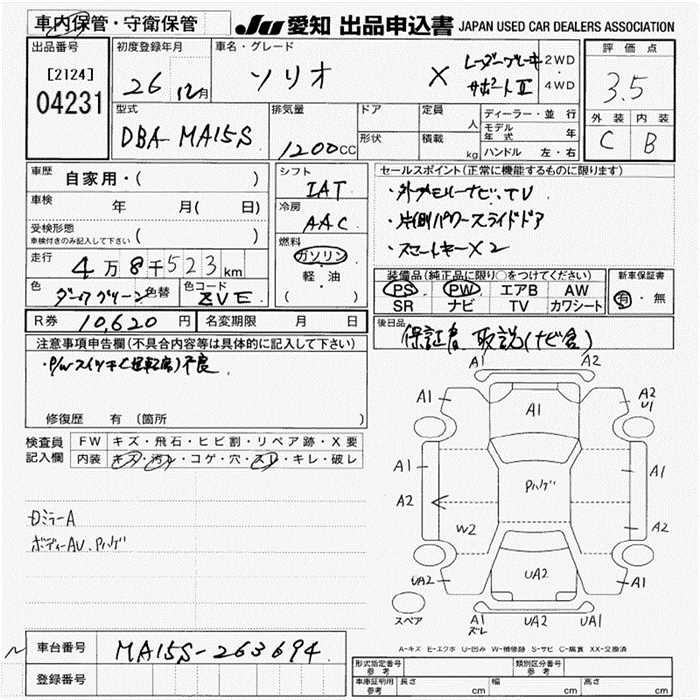 車内保管・守衛保管
JU 愛知 出品申込書 JAPAN USED CAR DEALERS ASSOCIATION
出品番号 初度登録年月 車名・グレード 評価点
[2124] 26 12月 ソリオ X レーダーブレーキサポートⅡ 2WD 4WD 3.5
04231
型式 排気量 ドア 定員 人 ディーラー・並行 外装 内装
DBA-MA15S 1200CC 形状 積載 kg モデル年式 年 C B
ハンドル 左・右
車歴 自家用・( ) シフト IAT セールスポイント(正常に機能するものに限ります)
車検 年 月( 日) 冷房 AAC ・外部メモリーナビ、TV
受検形態 車検付きのみ記入して下さい ( ) ・片側パワースライドドア
走行 4万8千523km 燃料 ガソリン ・スマートキー×2
軽・油
( )
色 ダークグリーン 色替 色コード ZVE
装備品(純正品に限り○をつけてください) 新車保証書
PS PW エアB AW 有・無
SR ナビ TV カワシート
R券 10,620円 名変期限 月 日
後日品 保証書 取説(ナビ含)
注意事項申告欄(不具合内容等は具体的に記入して下さい)
・P/Wスイッチ(運転席)不良
修復歴 有 (箇所 )
検査員記入欄 FW キズ・飛石・ヒビ割・リペア跡・X要
内装 キズ・汚レ・コゲ・穴・スレ・キレ・破レ
ロミラーA
ボディーAU、Pハゲ
A1 A2
A1 A1 A2 U1
A1 Pハゲ A1
A2 W2 A2
UA2 UA2 A1
スペア A1 ズレ UA2 UA1
A-キズ E-エクボ U-凹み W-補修跡 S-サビ C-腐食 XX-交換済
車台番号 MA15S-263694
登録番号
形式指定番号 参考 類別区分番号 参考
車庫証明用 参考 長さ cm 幅 cm 高さ cm